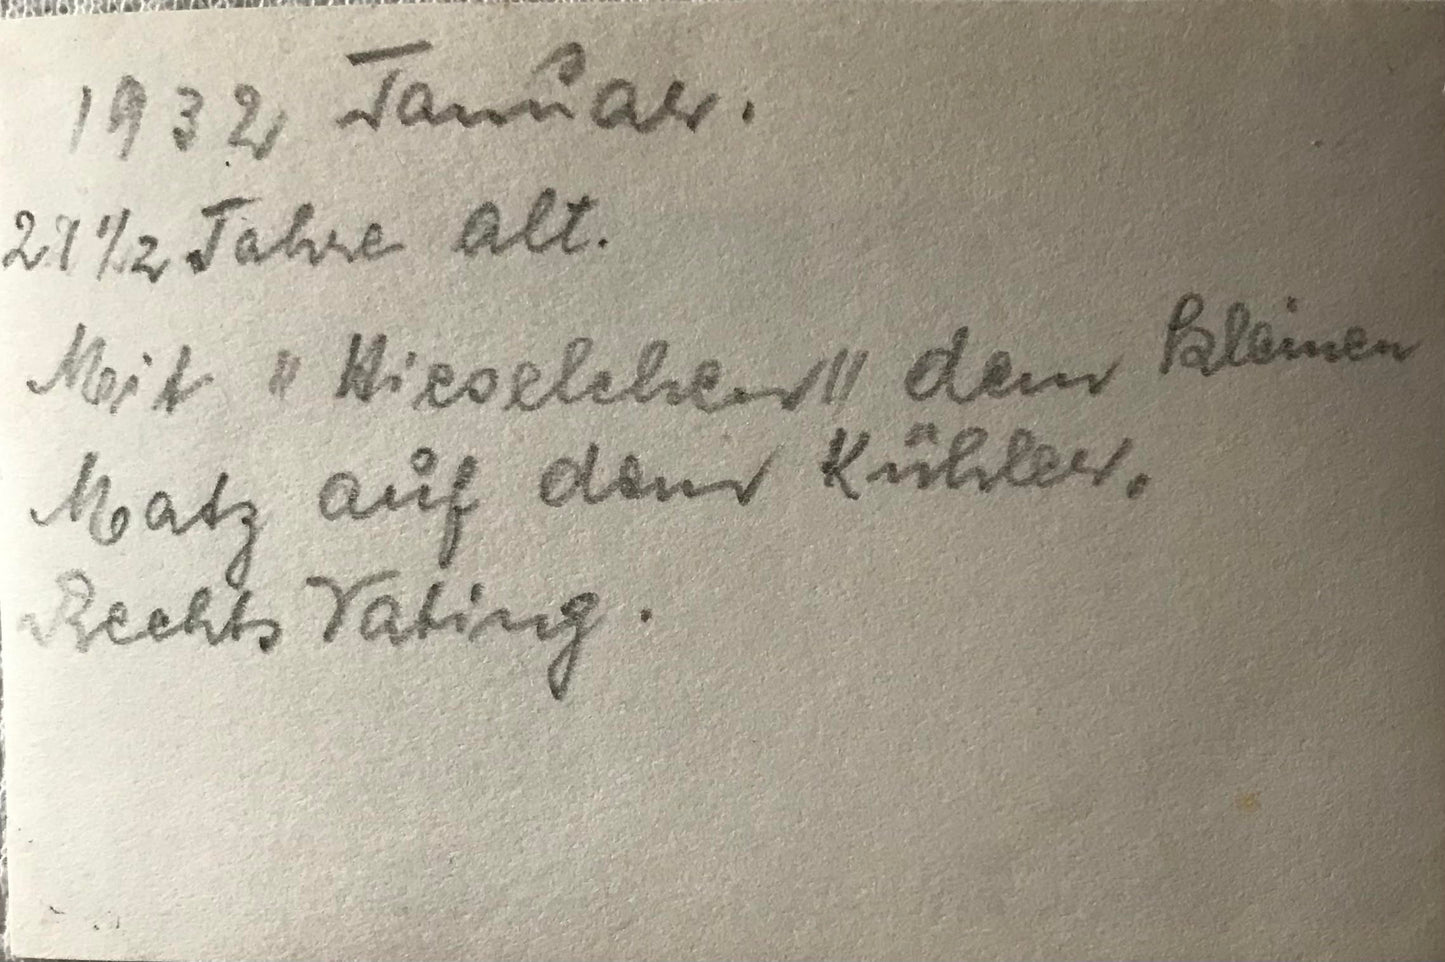 1932 Januar.
Jahre alt.
Mit "Wieselchen" dem kleinen
Matz auf dem Kühler.
Rechts Vating.